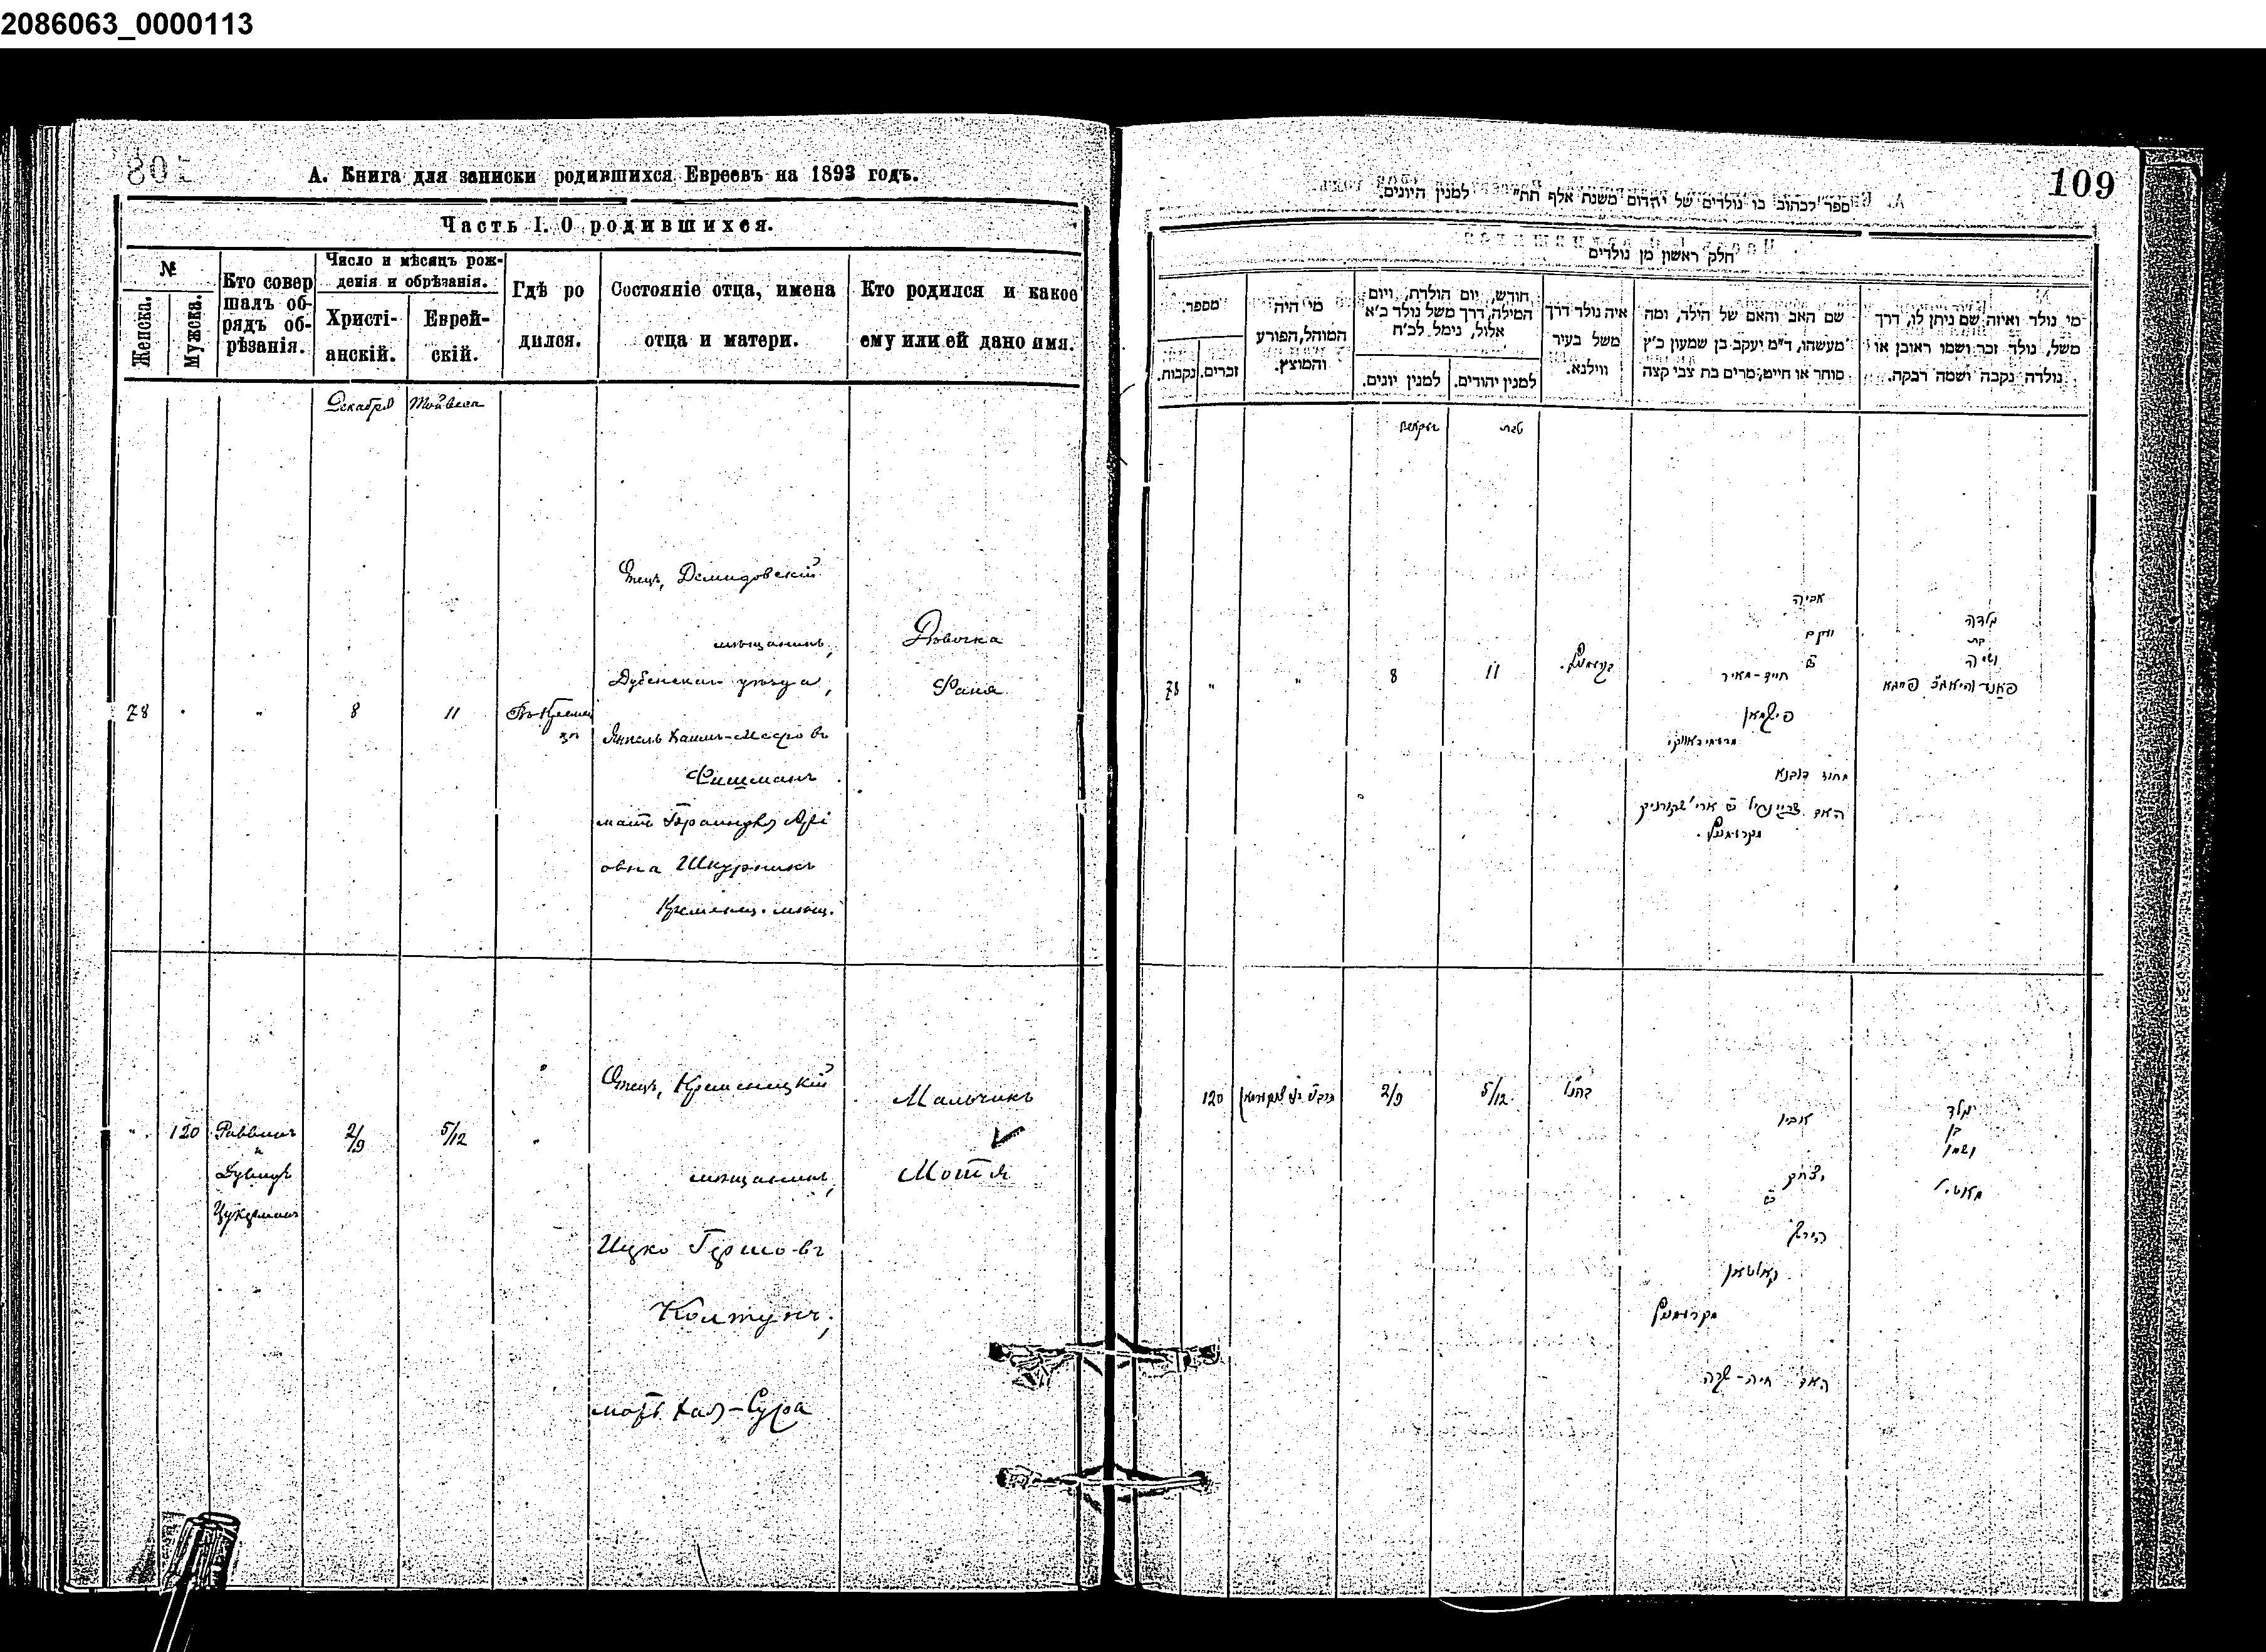 2086063_0000113
А. Книга для записки родившихся Евреевъ на 1893 годъ.
Часть I. О родившихся.
№
Женска.
Мужска.
Кто совер
шалъ об-
рядъ об-
рѣзанія.
Число и мѣсяцъ рож-
денія и обрѣзанія.
Христі-
анскій.
Еврей-
скій.
Гдѣ ро
дился.
Состояніе отца, имена
отца и матери.
Кто родился и какое
ему или ей дано имя.
Декабрь
78
"
8
11
Отецъ, Демидовскій
мѣщанинъ,
Дубенскаго уѣзда,
Янкель Хаимъ-Мееровъ
Фишманъ
мать
овна Шкурникъ
Кременец. мѣщ.
Дѣвочка
Фаня
"
120
Раввинъ
и
Цукерманъ
2/9
5/12
"
Отецъ, Кременецкій
мѣщанинъ,
Ицко Гершовъ
Колтунъ,
мать Хая-Сура
Мальчикъ
Мотя
109
ספר לכתוב בו נולדים של יהדום משנת אלף תת" למנין היונים.
חלק ראשון מן נולדים
מספר.
זכרים.
נקבות.
מי היה
המוהל, הפורע
והמוצץ.
חודש, יום הולדת, ויום
המילה, דרך משל נולד כ'א
אלול, נימל לכ'ח
למנין יונים.
למנין יהודים.
איה נולד דרך
משל בעיר
ווילנא.
שם האב והאם של הילד, ומה
מעשהו, ד"מ יעקב בן שמעון כ'ץ
סוחר או חייט, מרים בת צבי קצה
מי נולד ואיזה שם ניתן לו, דרך
משל, נולד זכר ושמו ראובן או
נולדה נקבה ושמה רבקה.
טבת
78
"
"
8
11
אביה
יעקב
חיים-מאיר
פישמאן
מחוז דובנא
נולדה
בת
ושמה
120
2/9
5/12
אביו
יצחק
הירש
קאלטאן
מקרעמעניץ
האם חיה-שרה
נולד
בן
ושמו